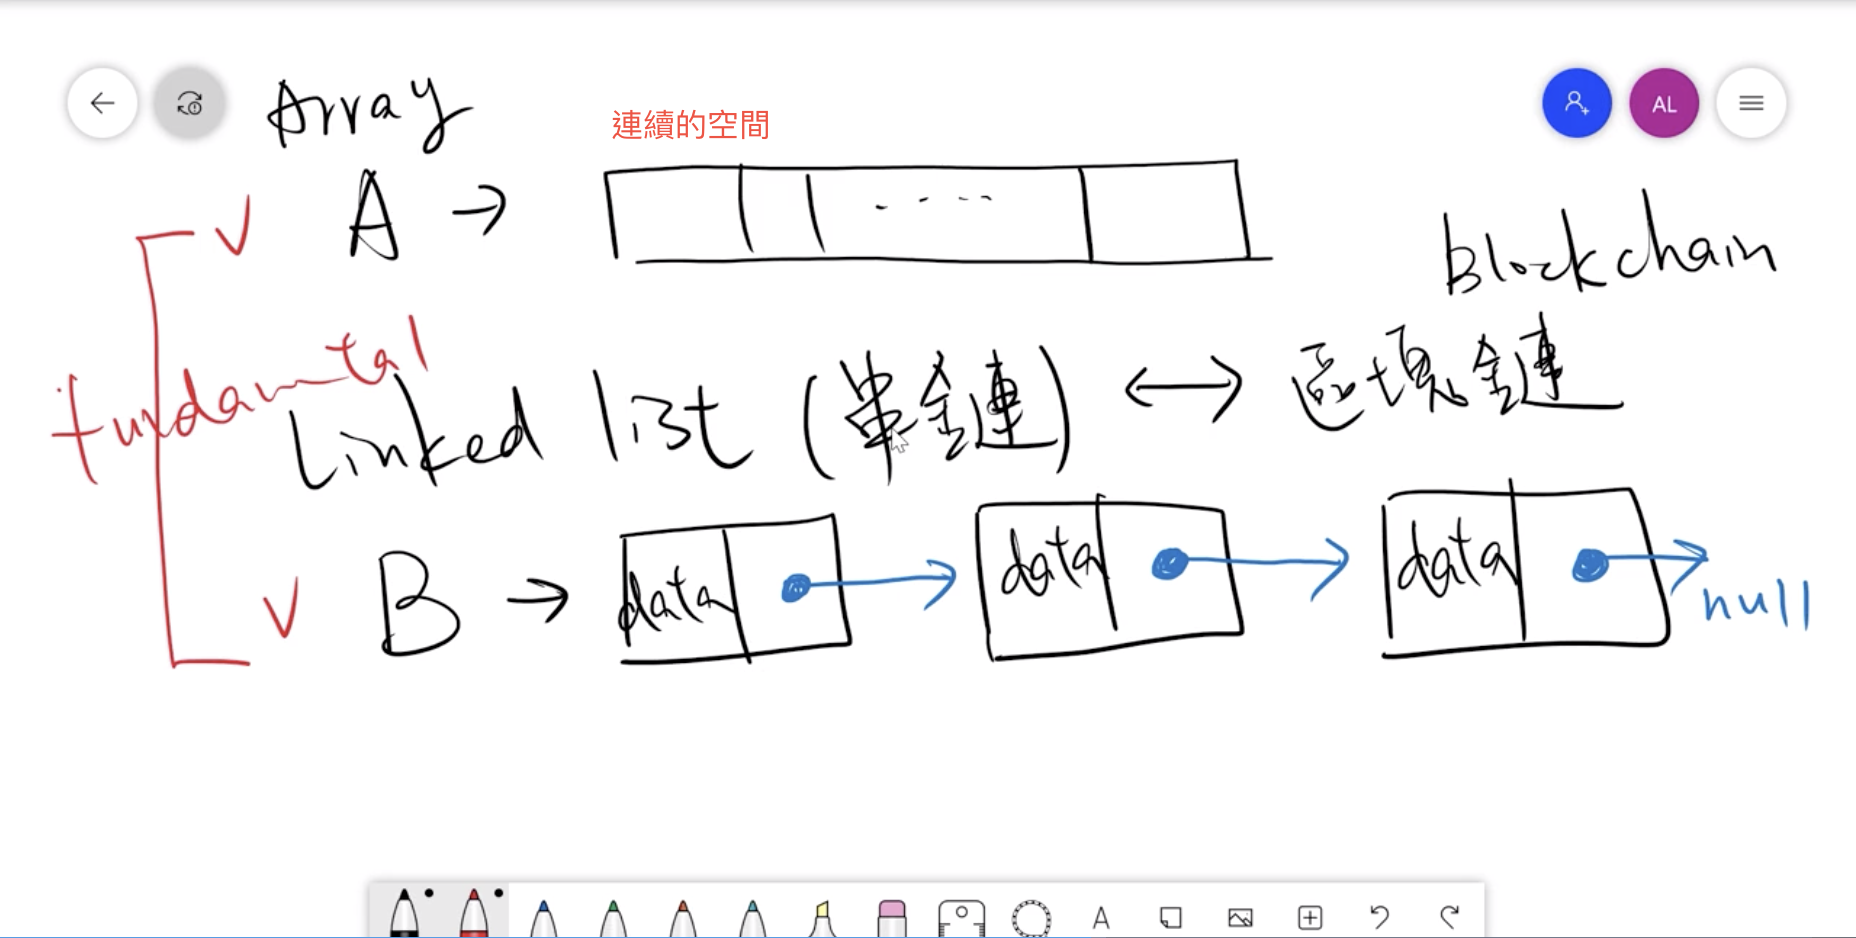 Array
連續的空間
AL
A →
----
Blockchain
fundamental
Linked list (單鏈) ↔ 區塊鏈
B → data → data → data → null
A